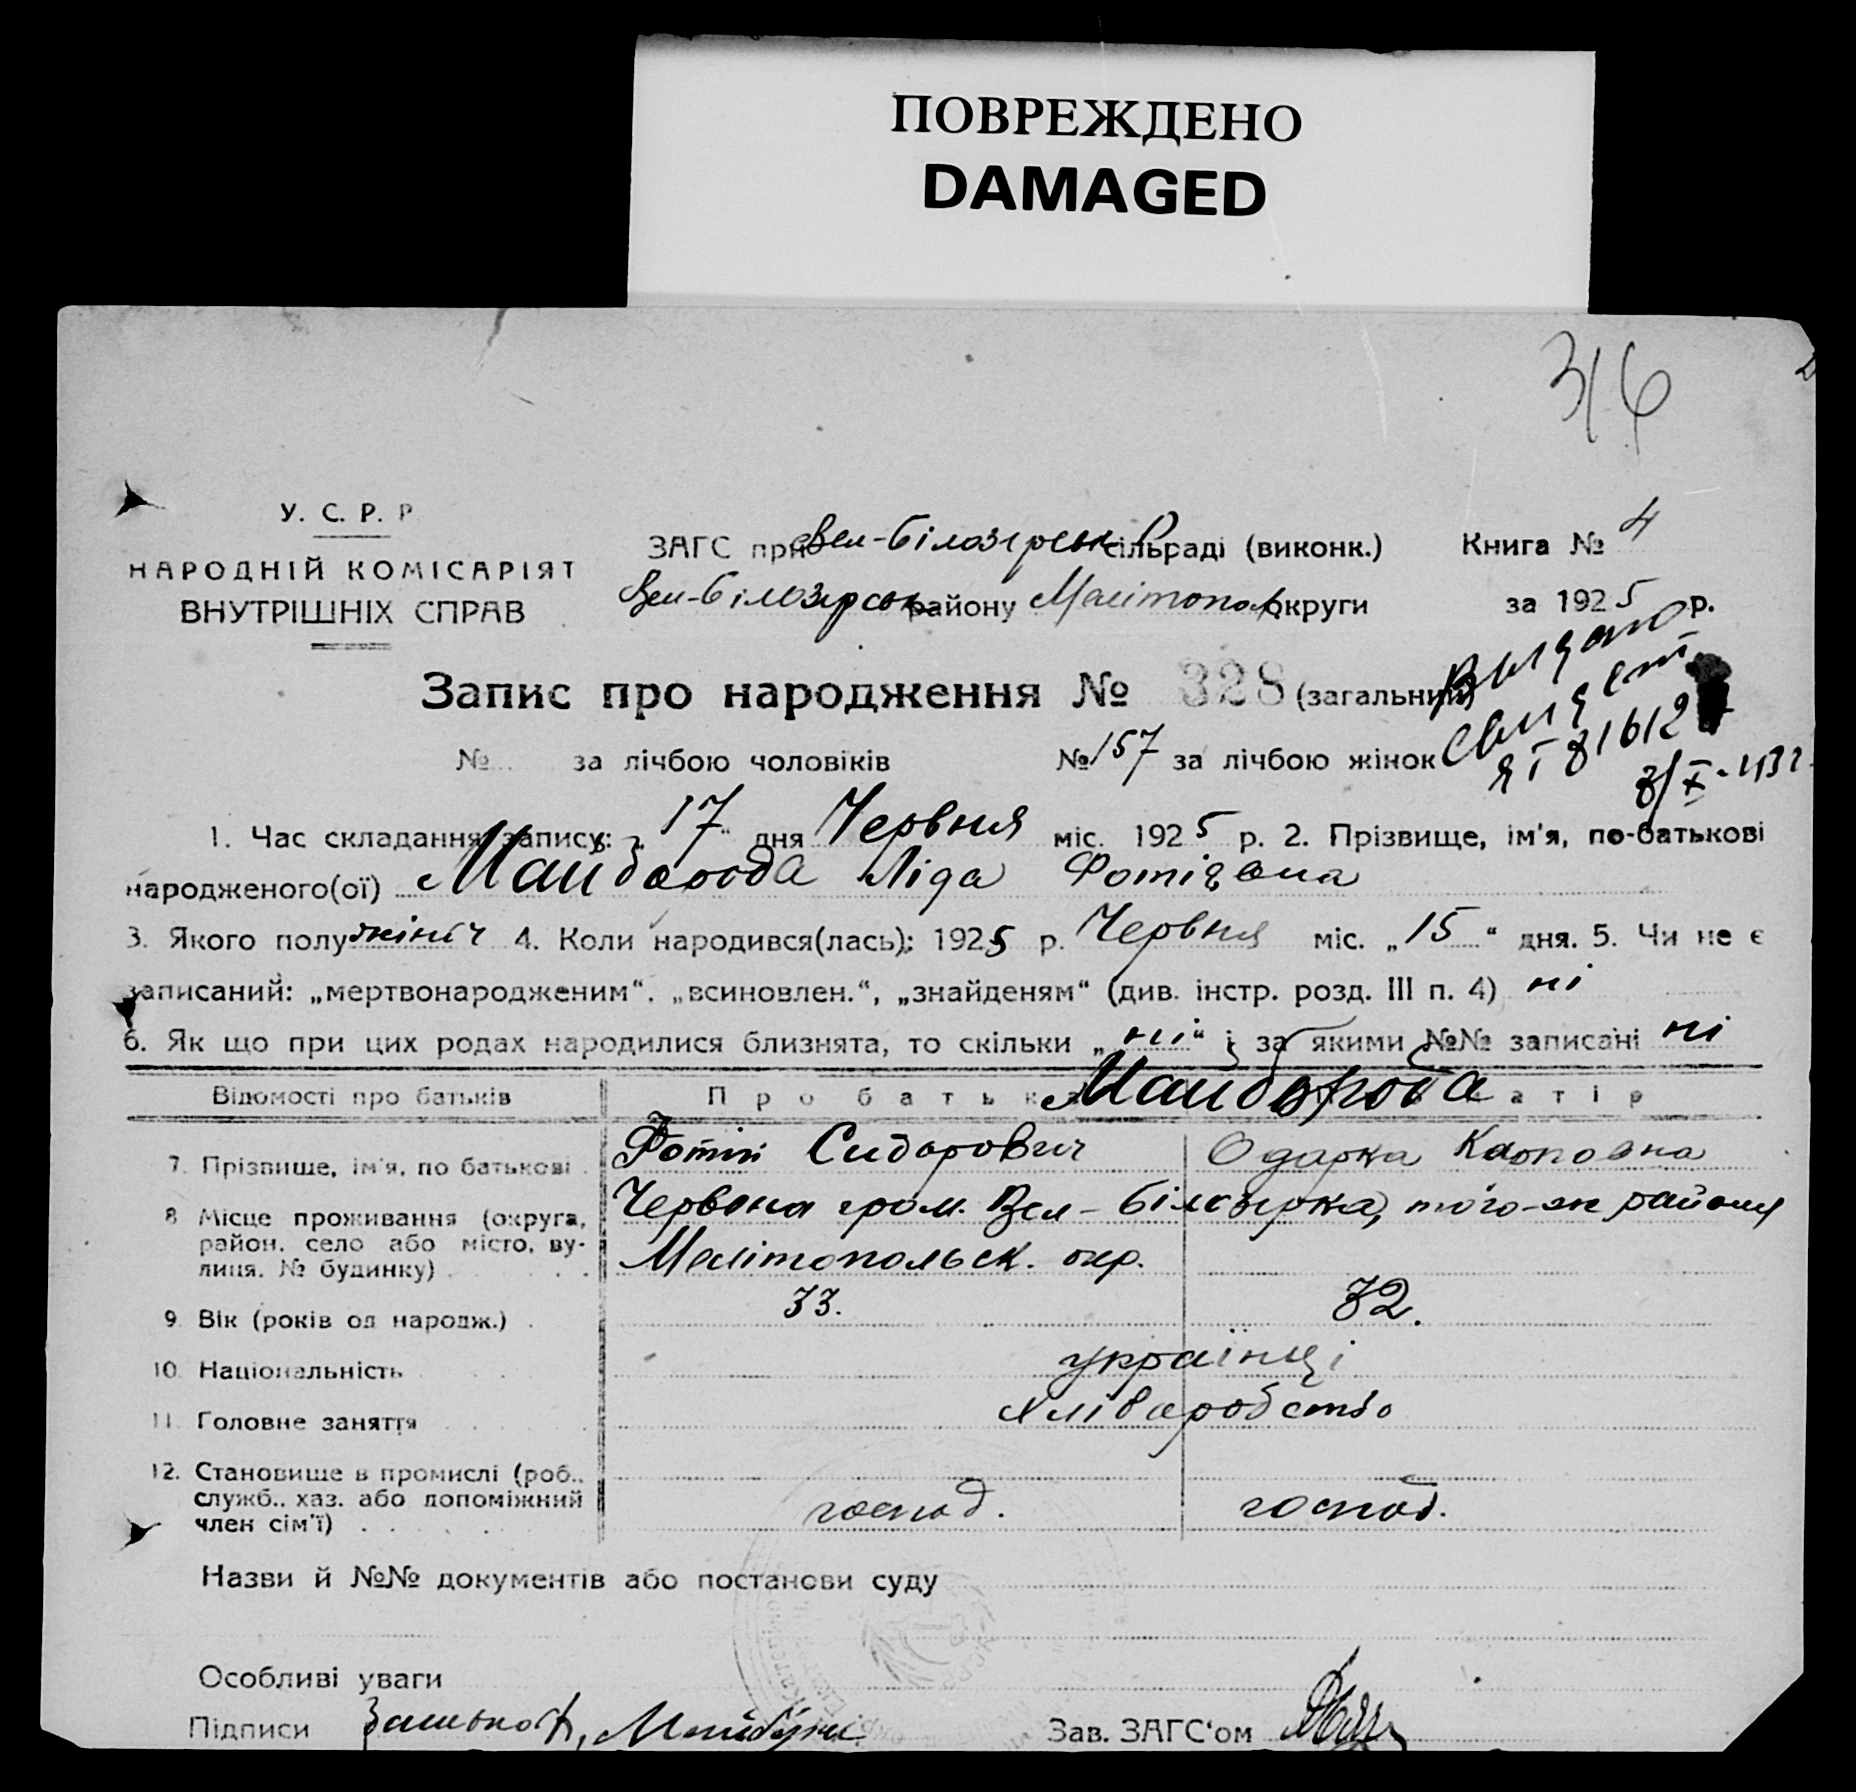 ПОВРЕЖДЕНО
DAMAGED
316
У. С. Р. Р
НАРОДНІЙ КОМІСАРІЯТ
ВНУТРІШНІХ СПРАВ
ЗАГС при Вел-Білозерськ сільраді (виконк.) Книга № 4
Вел-Білозерськ району Мелітопол округи за 1925 р.
Запис про народження № 328 (загальний)
Выдано
свидет
№ за лічбою чоловіків № 157 за лічбою жінок
1. Час складання запису: „17“ дня Червня міс. 1925 р. 2. Прізвище, ім'я, по-батькові
народженого(ої) Майборода Ліда Фотіївна
3. Якого полу жіноч 4. Коли народився(лась): 1925 р. Червня міс. „15“ дня. 5. Чи не є
записаний: „мертвонародженим“, „всиновлен.“, „знайденям“ (див. інстр. розд. III п. 4) ні
6. Як що при цих родах народилися близнята, то скільки „ні“ і за якими №№ записані ні
Відомості про батьків Про батька Майборода матір
7. Прізвище, ім'я, по батькові Фотій Сидорович Одарка Карповна
8 Місце проживання (округа, район, село або місто, вулиця, № будинку) Червона гром. Вел-Білозырка, того-ж району
Мелітопольск. окр.
9. Вік (років од народж.) 33. 32.
10. Національність українці
11. Головне заняття хліборобство
12. Становище в промислі (роб.,
служб., хаз. або допоміжний
член сім'ї) господ. господ.
Назви й №№ документів або постанови суду
Особливі уваги
Підписи
Зав. ЗАГС'ом